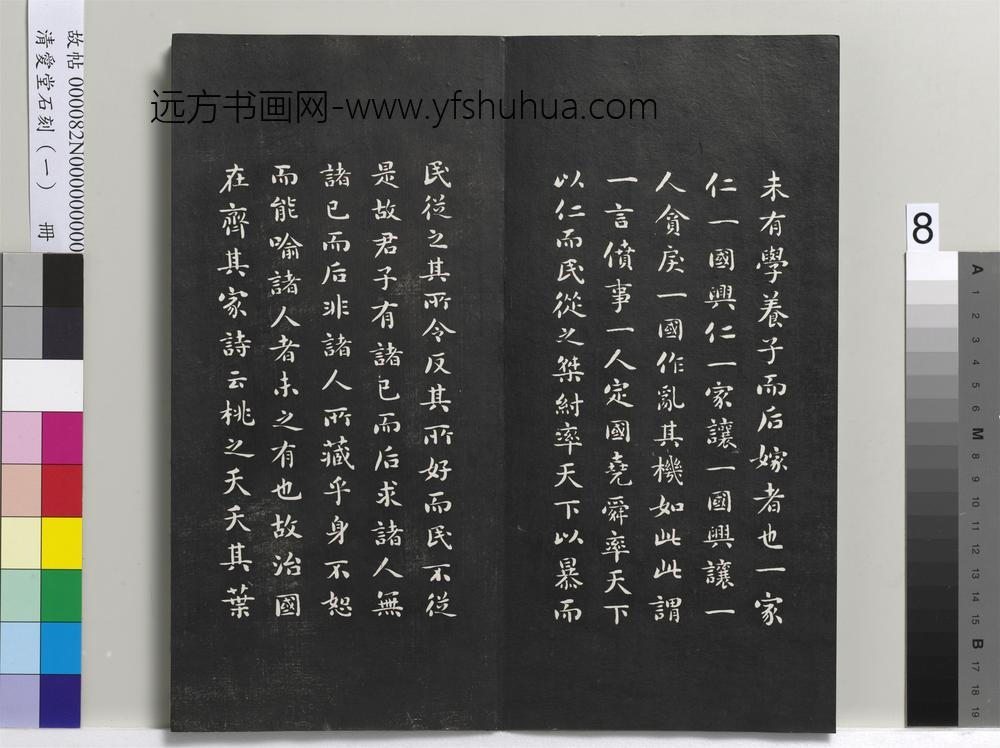 未有學養子而后嫁者也一家
仁一國興仁一家讓一國興讓一
人貪戾一國作亂其機如此此謂
一言僨事一人定國堯舜率天下
以仁而民從之桀紂率天下以暴而
民從之其所令反其所好而民不從
是故君子有諸己而后求諸人無
諸己而后非諸人所藏乎身不恕
而能喻諸人者未之有也故治國
在齊其家詩云桃之夭夭其葉
远方书画网-www.yfshuhua.com
故帖 000082N000000000
清愛堂石刻（一） 冊
8
A
1
2
3
4
5
6
M
8
9
10
11
12
13
14
15
B
17
18
19